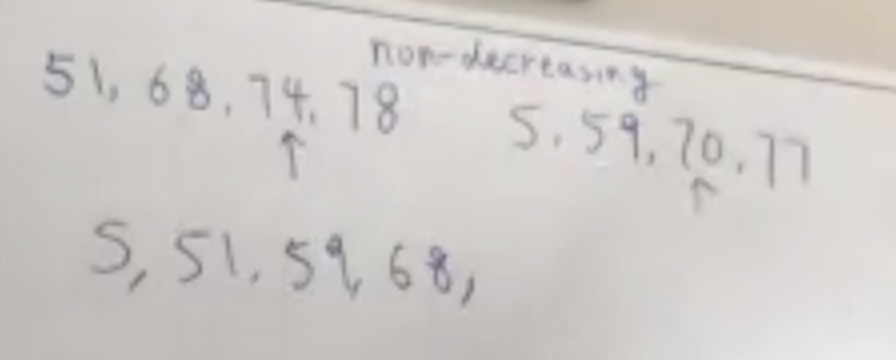 non-decreasing
51, 68, 74, 78
5, 59, 70, 77
↑ ↑
5, 51, 59, 68,